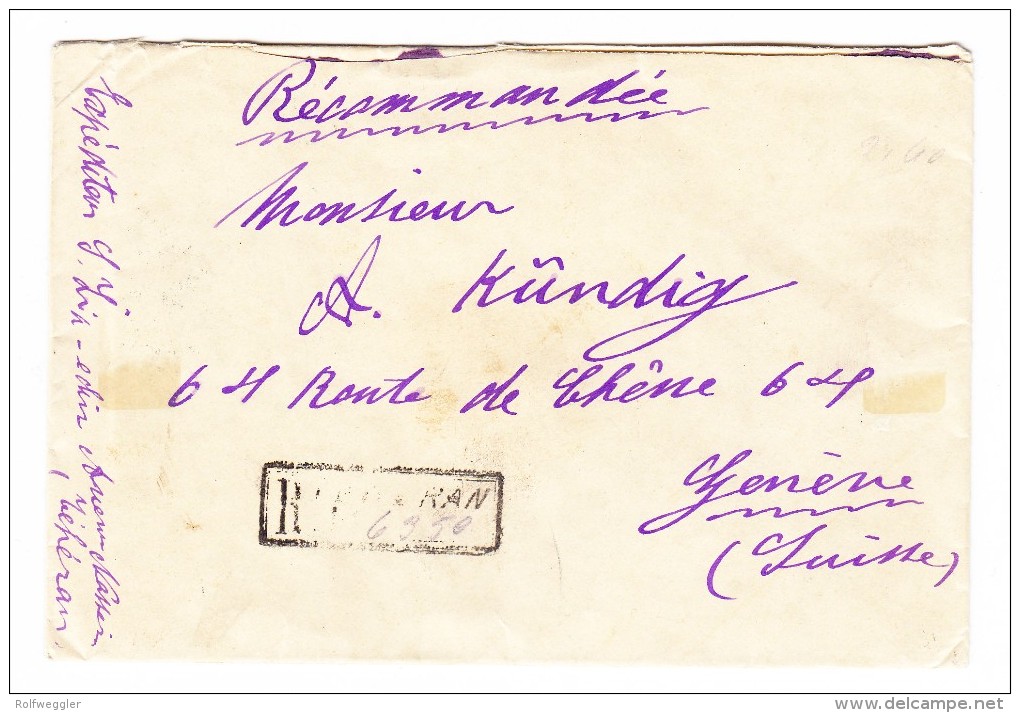 Récommandée
Monsieur
A. Kündig
64 Route de Chêne 64
Genève
(Suisse)
R TEHERAN
6950
Expéditeur
Téhéran
Rolfweggler
www.delcampe.net